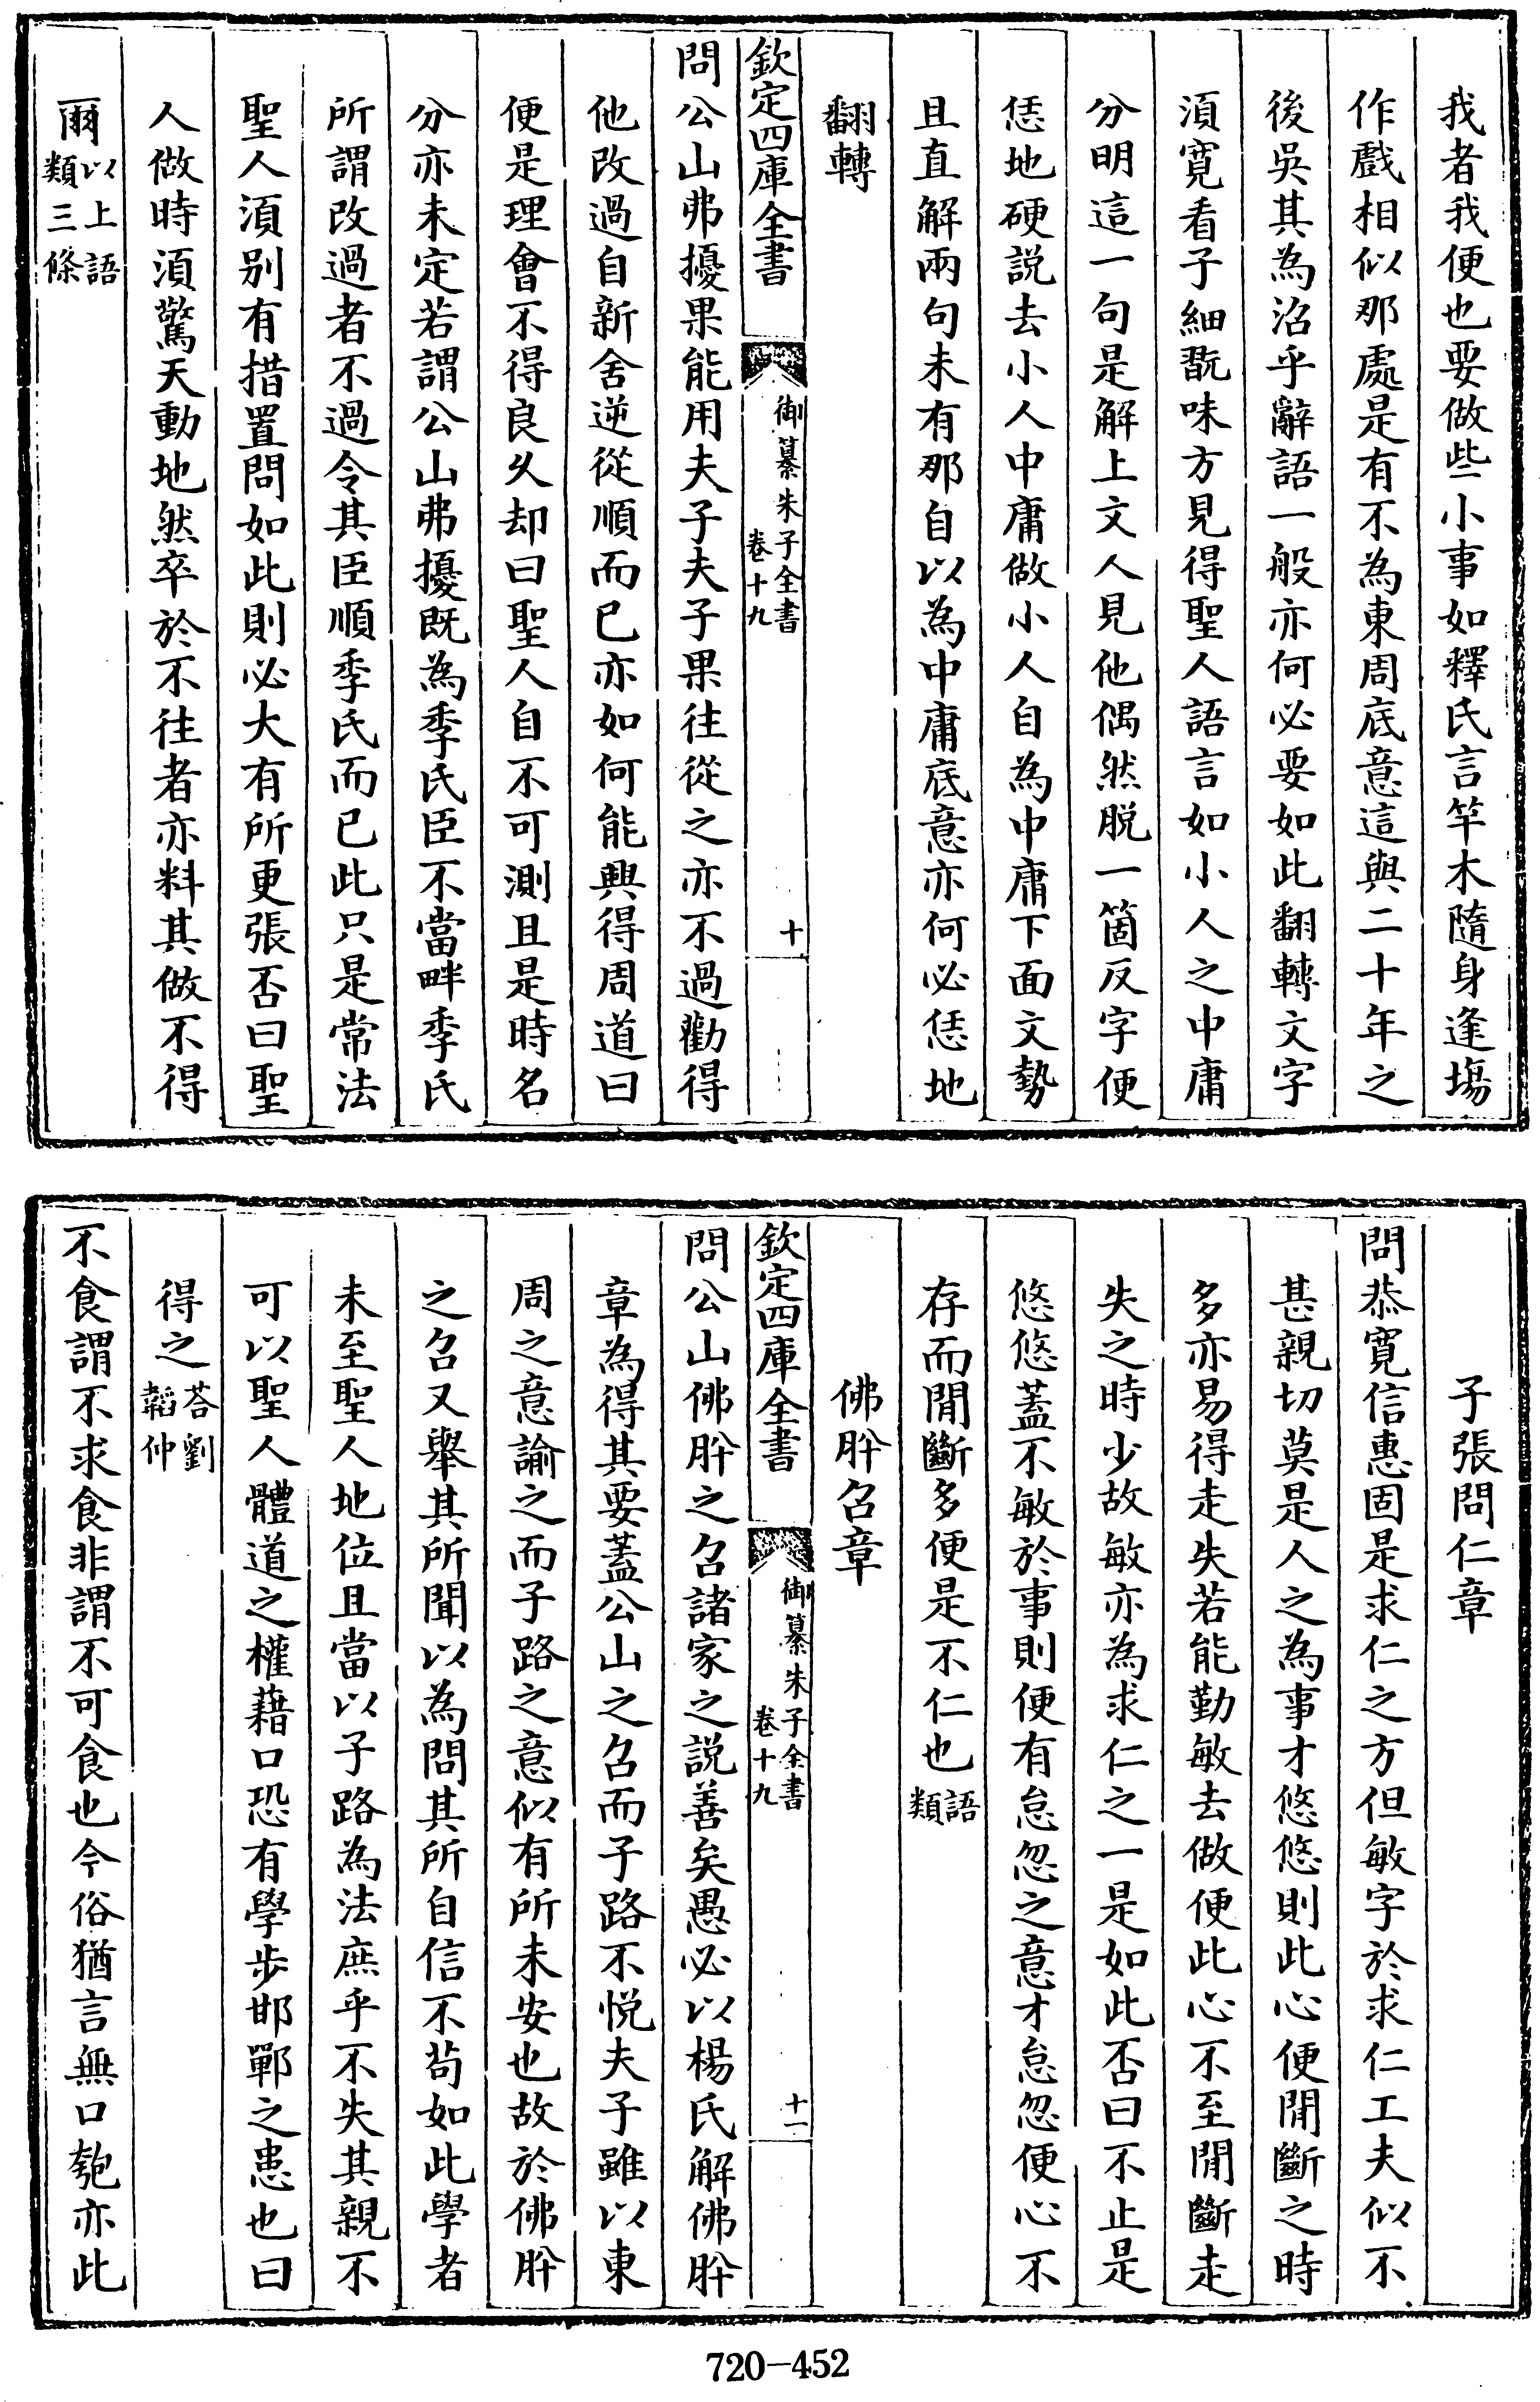 我者我便也要做些小事如釋氏言竿木隨身逢塲
作戲相似那處是有不為東周底意這與二十年之
後吳其為沼乎辭語一般亦何必要如此翻轉文字
須寛看子細翫味方見得聖人語言如小人之中庸
分明這一句是解上文人見他偶然脫一箇反字便
恁地硬説去小人中庸做小人自為中庸下面文勢
且直解兩句未有那自以為中庸底意亦何必恁地
翻轉
欽定四庫全書
御纂朱子全書
卷十九
十
問公山弗擾果能用夫子夫子果往從之亦不過勸得
他改過自新舍逆從順而已亦如何能興得周道曰
便是理會不得良乆却曰聖人自不可測且是時名
分亦未定若謂公山弗擾既為季氏臣不當畔季氏
所謂改過者不過令其臣順季氏而已此只是常法
聖人須别有措置問如此則必大有所更張否曰聖
人做時須驚天動地然卒於不往者亦料其做不得
爾以上語
類三條
子張問仁章
問恭寛信惠固是求仁之方但敏字於求仁工夫似不
甚親切莫是人之為事才悠悠則此心便閒斷之時
多亦易得走失若能勤敏去做便此心不至閒斷走
失之時少故敏亦為求仁之一是如此否曰不止是
悠悠蓋不敏於事則便有怠忽之意才怠忽便心不
存而閒斷多便是不仁也語
類
佛肸召章
欽定四庫全書
御纂朱子全書
卷十九
十一
問公山佛肸之召諸家之説善矣愚必以楊氏解佛肸
章為得其要蓋公山之召而子路不悦夫子雖以東
周之意諭之而子路之意似有所未安也故於佛肸
之召又舉其所聞以為問其所自信不茍如此學者
未至聖人地位且當以子路為法庶乎不失其親不
可以聖人體道之權藉口恐有學步邯鄲之患也曰
得之荅劉
韜仲
不食謂不求食非謂不可食也今俗猶言無口匏亦此
720-452